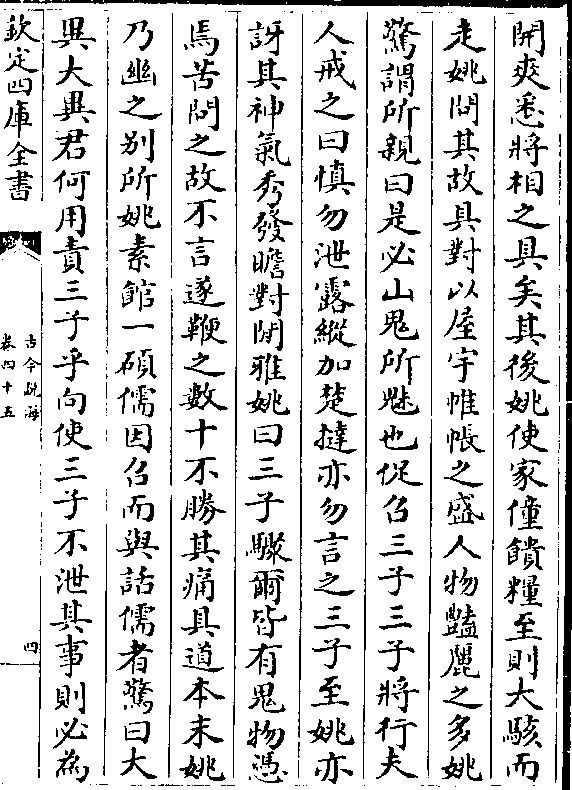 開爽悉將相之具矣其後姚使家僮饋糧至則大駭而
走姚問其故具對以屋宇帷帳之盛人物豔麗之多姚
驚謂所親曰是必山鬼所魅也促召三子三子將行夫
人戒之曰慎勿泄露縱加楚撻亦勿言之三子至姚亦
訝其神氣秀發瞻對閒雅姚曰三子驟爾皆有鬼物憑
焉苦問之故不言遂鞭之數十不勝其痛具道本末姚
乃幽之别所姚素館一碩儒因召而與話儒者驚曰大
異大異君何用責三子乎向使三子不泄其事則必為
欽定四庫全書
古今説海
卷四十五
四